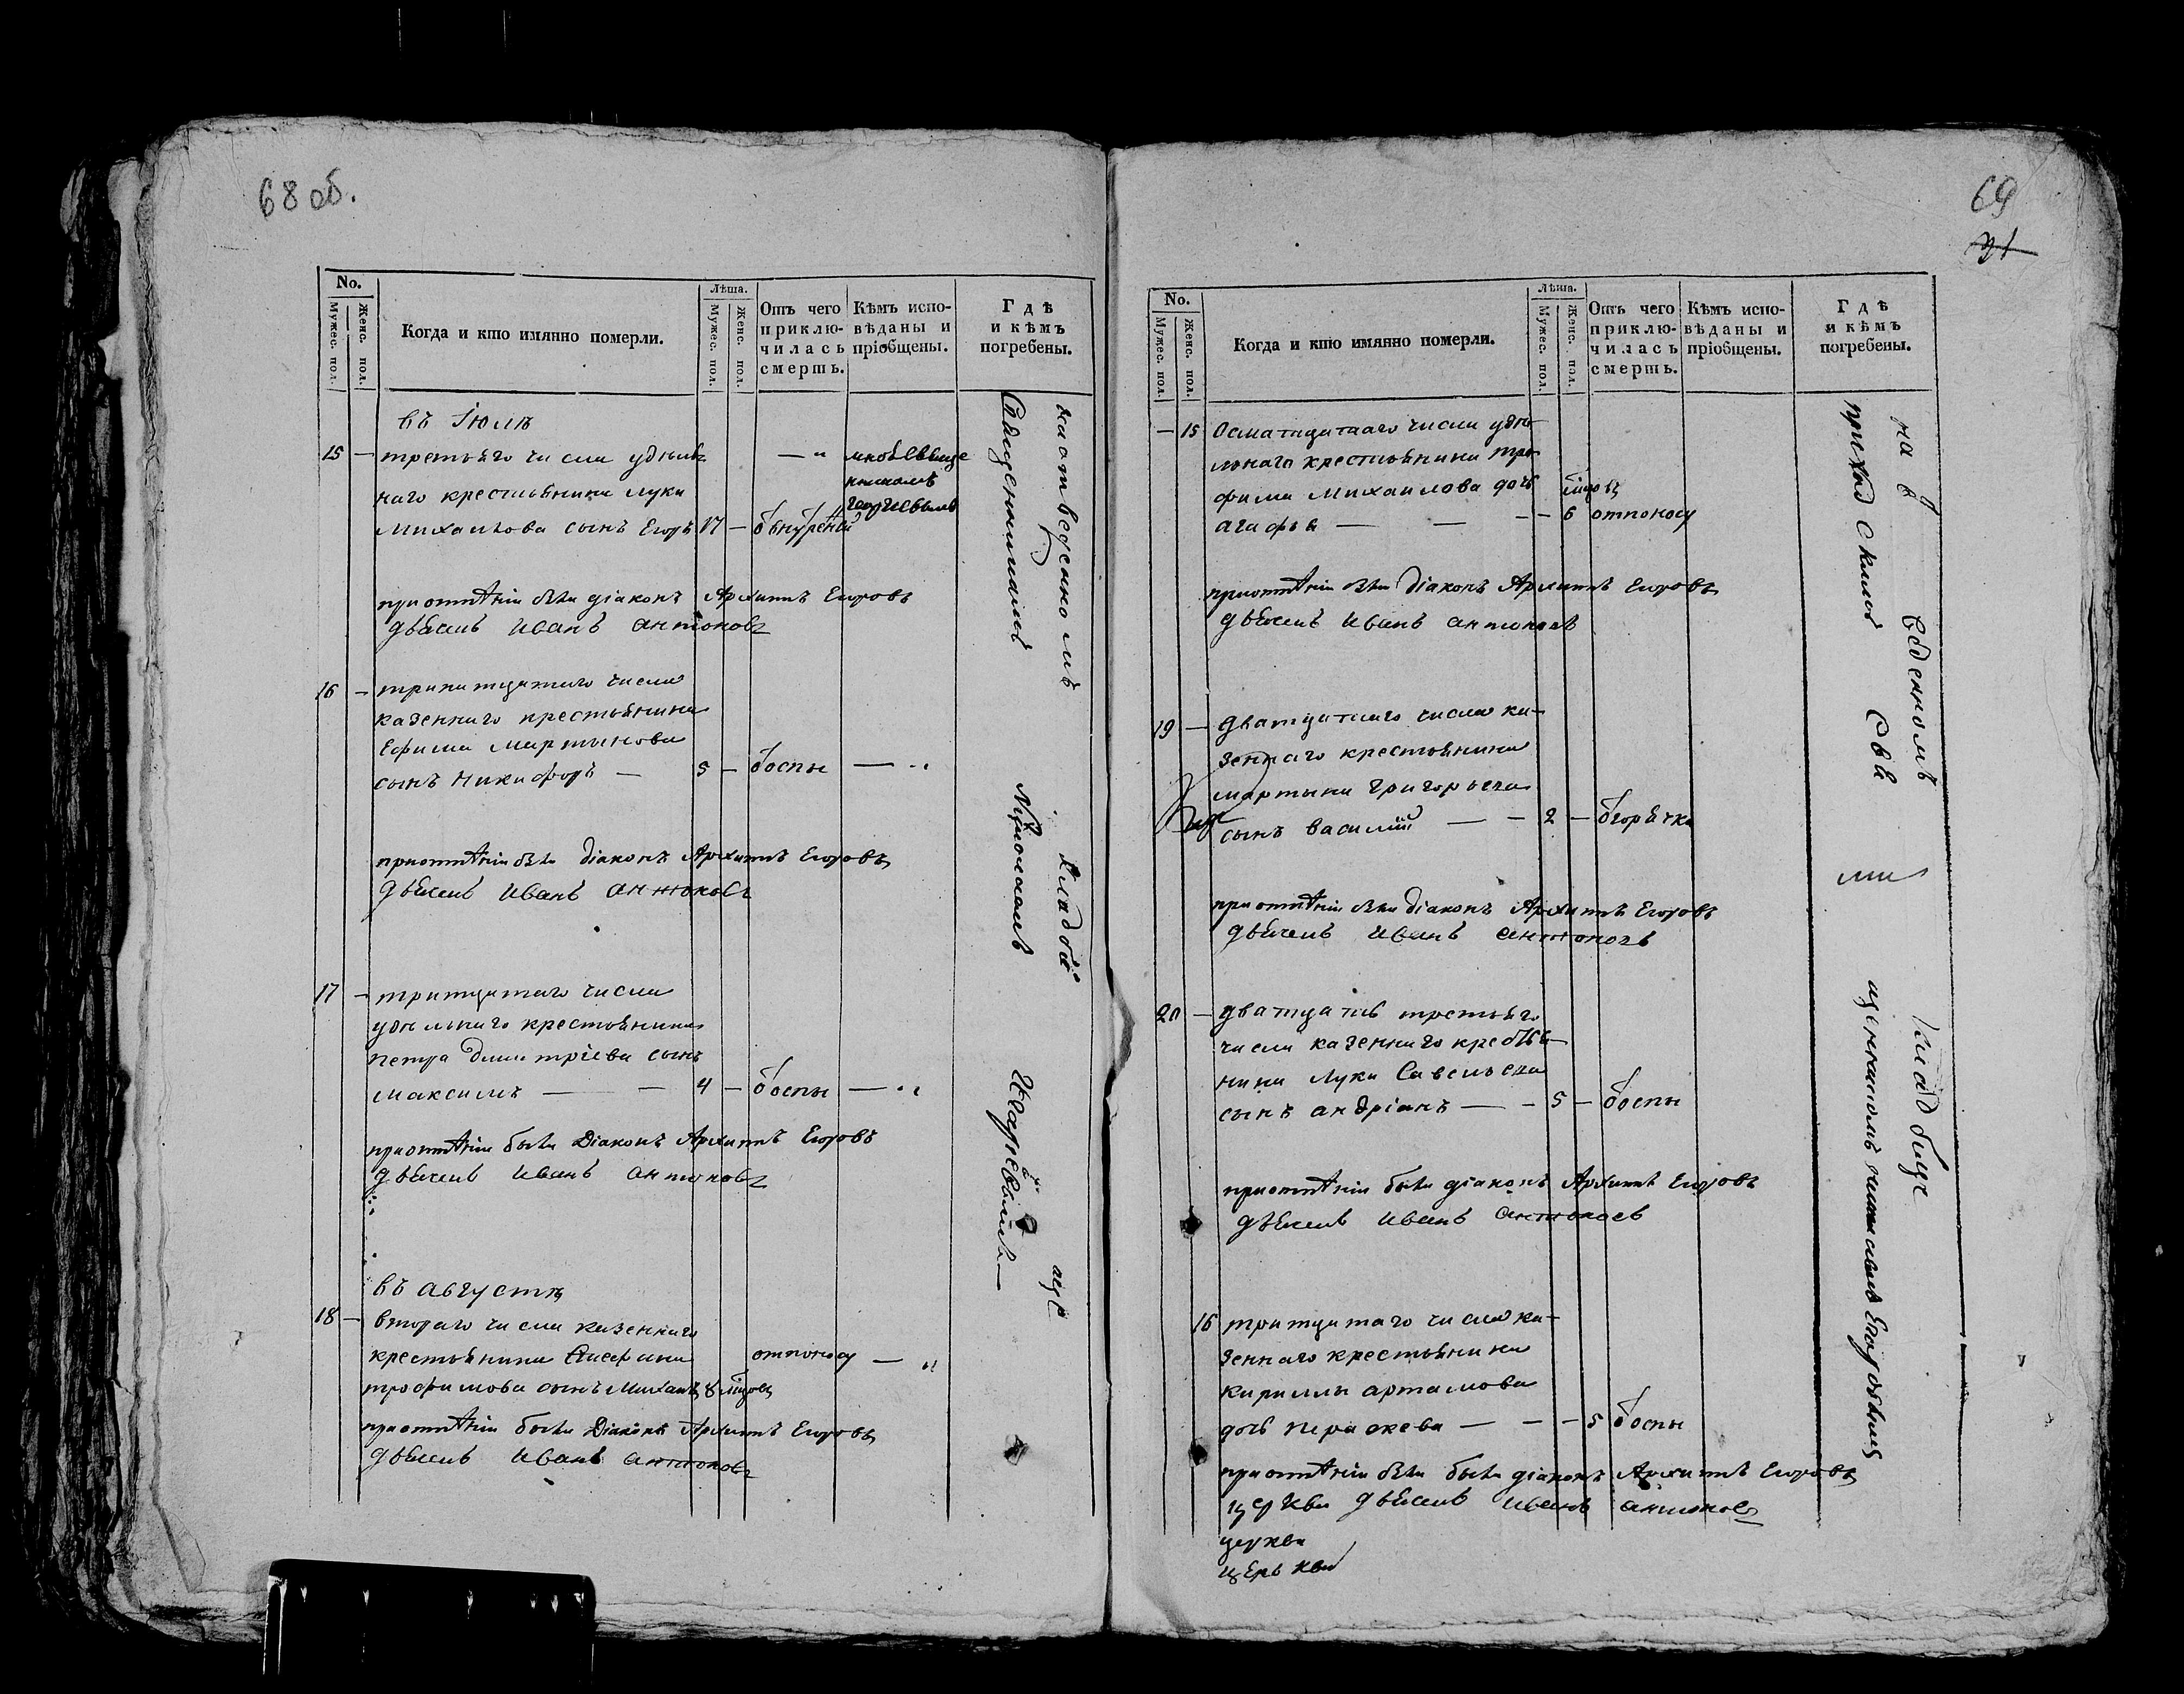 68 об.
No.
Мужес. пол.
Женс. пол.
Когда и кто имянно померли.
Лѣта.
Мужес. пол.
Женс. пол.
Отъ чего приклю-чилась смерть.
Кѣмъ испо-вѣданы и пріобщены.
Гдѣ и кѣмъ погребены.
въ Іюлѣ
15 — третьяго числа удѣль
наго крестьянина луки
Михайлова сынъ Егоръ 17 —
приотпѣтіи были діаконъ Архипъ Егоровъ
дьячекъ Иванъ антоновъ
16 — тринатцатаго числа
казеннаго крестьянина
Ефима мартынова
сынъ Никифоръ — 5 — отоспы — "
приотпѣтіи были діаконъ Архипъ Егоровъ
дьячекъ Иванъ антоновъ
17 — тритцатаго числа
удѣльнаго крестьянина
петра дмитріева сынъ
максимъ — — 4 — отоспы — "
приотпѣтіи были Діаконъ Архипъ Егоровъ
дьячекъ Иванъ антоновъ
въ августѣ
18 — втораго числа казеннаго
крестьянина
отпоносу — "
трофимова сынъ Михаилъ 8
приотпѣтіи были Діаконъ Архипъ Егоровъ
дьячекъ Иванъ антоновъ
Священникомъ
69
No.
Мужес. пол.
Женс. пол.
Когда и кто имянно померли.
Лѣта.
Мужес. пол.
Женс. пол.
Отъ чего приклю-чилась смерть.
Кѣмъ испо-вѣданы и пріобщены.
Гдѣ и кѣмъ погребены.
— 15 Осматцатаго числа удѣ
льнаго крестьянина тро
фима Михайлова дочь
агафья — — — 6 отпоносу
приотпѣтіи были діаконъ Архипъ Егоровъ
дьячекъ Иванъ антоновъ
19 — дватцатаго числа ка-
зеннаго крестьянина
мартына григорьева
сынъ василій — — 2 — отгорячки
приотпѣтіи были діаконъ Архипъ Егоровъ
дьячекъ Иванъ антоновъ
20 — дватцать третьяго
числа казеннаго крестья-
нина Луки Савельева
сынъ андріанъ — — 5 — отоспы
приотпѣтіи были діаконъ Архипъ Егоровъ
дьячекъ Иванъ антоновъ
16 тритцатаго числа ка-
зеннаго крестьянина
кирилы артамова
дочь параскева — — — 5 отоспы
приотпѣтіи были были діаконъ Архипъ Егоровъ
церкви дьячекъ Иванъ антоновъ
церкви
церькви